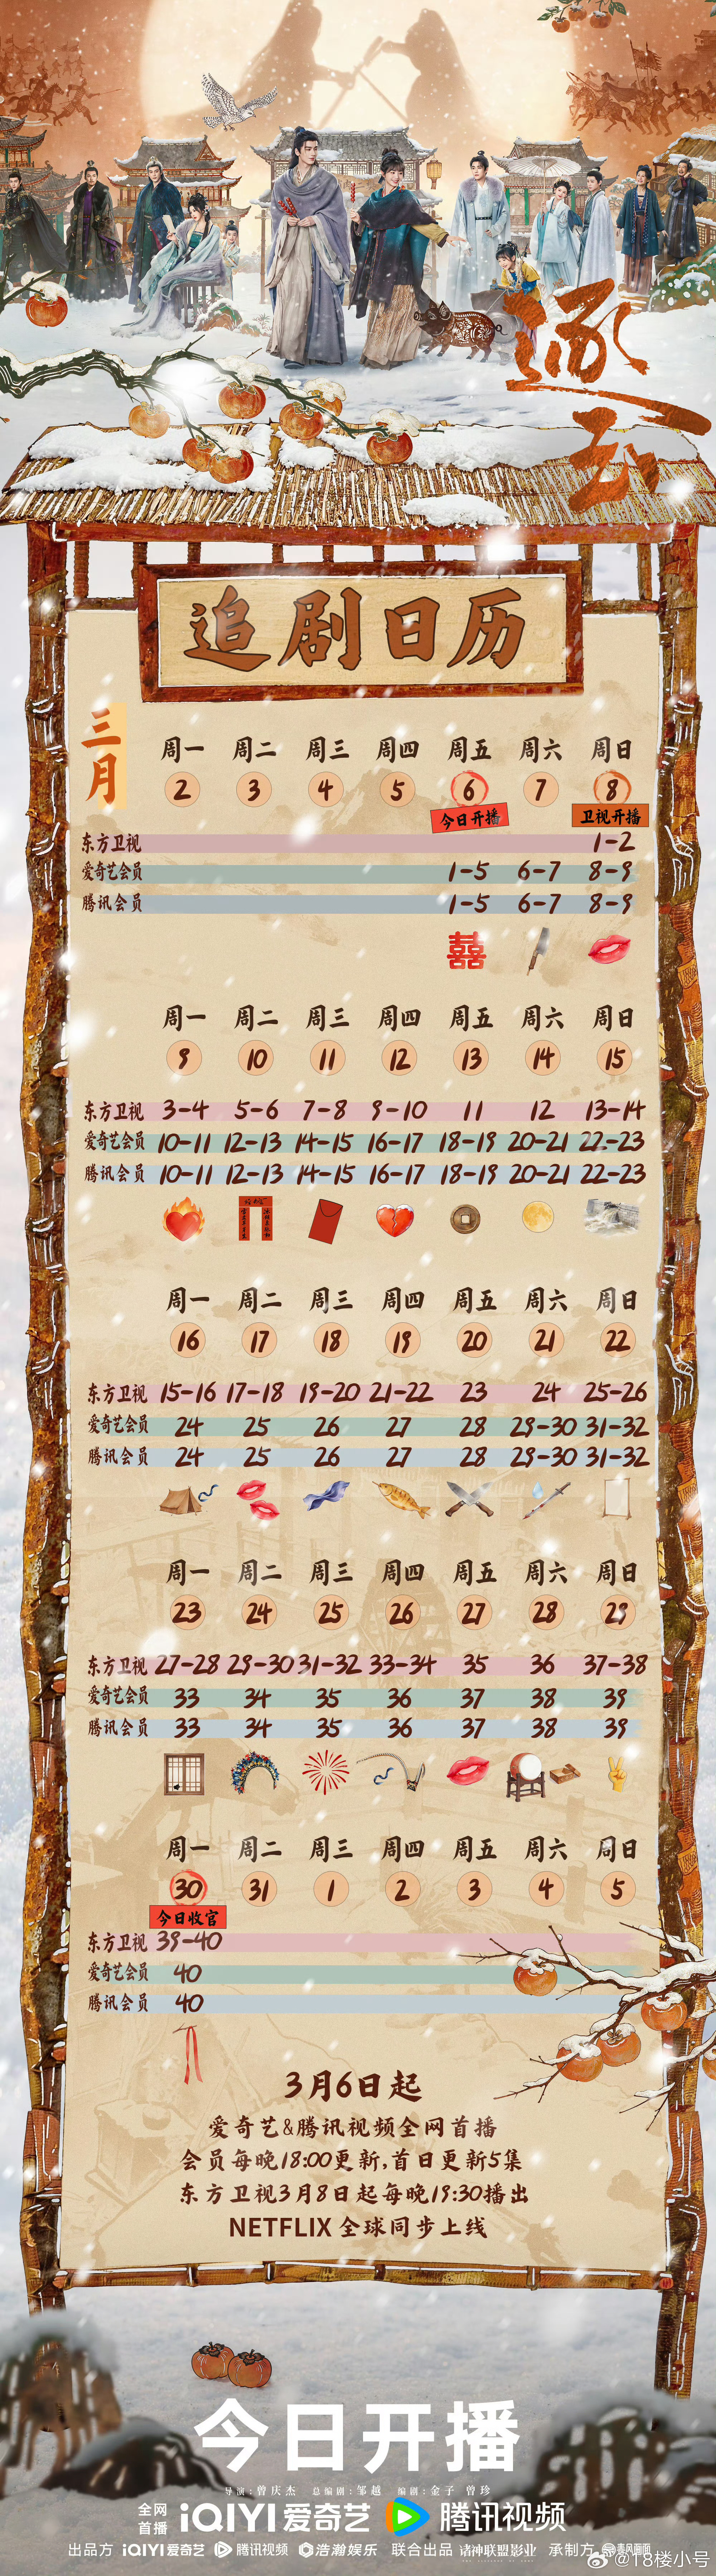 逐玉
追剧日历
三月
周一 周二 周三 周四 周五 周六 周日
2 3 4 5 6 7 8
今日开播 卫视开播
东方卫视 1-2
爱奇艺会员 1-5 6-7 8-9
腾讯会员 1-5 6-7 8-9
囍
周一 周二 周三 周四 周五 周六 周日
9 10 11 12 13 14 15
东方卫视 3-4 5-6 7-8 9-10 11 12 13-14
爱奇艺会员 10-11 12-13 14-15 16-17 18-19 20-21 22-23
腾讯会员 10-11 12-13 14-15 16-17 18-19 20-21 22-23
周一 周二 周三 周四 周五 周六 周日
16 17 18 19 20 21 22
东方卫视 15-16 17-18 19-20 21-22 23 24 25-26
爱奇艺会员 24 25 26 27 28 29-30 31-32
腾讯会员 24 25 26 27 28 29-30 31-32
周一 周二 周三 周四 周五 周六 周日
23 24 25 26 27 28 29
东方卫视 27-28 29-30 31-32 33-34 35 36 37-38
爱奇艺会员 33 34 35 36 37 38 39
腾讯会员 33 34 35 36 37 38 39
周一 周二 周三 周四 周五 周六 周日
30 31 1 2 3 4 5
今日收官
东方卫视 39-40
爱奇艺会员 40
腾讯会员 40
3月6日起
爱奇艺&腾讯视频全网首播
会员每晚18:00更新,首日更新5集
东方卫视3月8日起每晚19:30播出
NETFLIX 全球同步上线
今日开播
导演:曾庆杰 总编剧:邹越 编剧:金子 曾珍
全网首播 iQIYI爱奇艺 腾讯视频
出品方 iQIYI爱奇艺 腾讯视频 浩瀚娱乐 联合出品 诸神联盟影业 承制方
@18楼小号